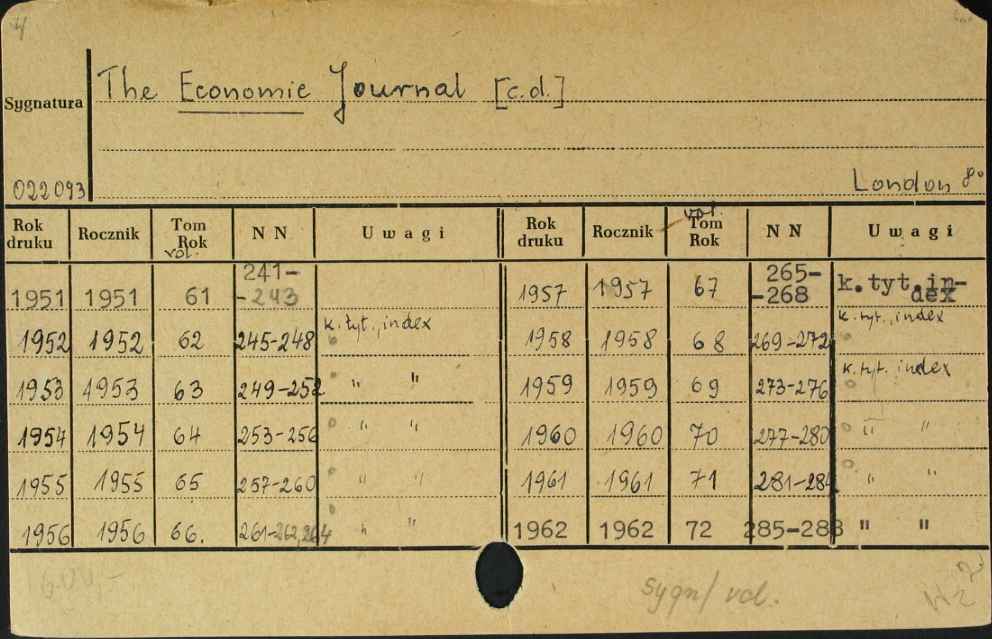 4
The Economic Journal [c.d.]
Sygnatura
022093
London 8°
Rok druku Rocznik Tom Rok vol. N N Uwagi Rok druku Rocznik vol. Tom Rok N N Uwagi
1951 1951 61 241- -243 1957 1957 67 265- -268 k.tyt.in- dex
1952 1952 62 245-248 k.tyt., index 1958 1958 68 269-272 k.tyt., index
1953 1953 63 249-252 " " 1959 1959 69 273-276 k.tyt. index
1954 1954 64 253-256 " " 1960 1960 70 277-280 " "
1955 1955 65 257-260 " " 1961 1961 71 281-284 " "
1956 1956 66. 261-262,264 " " 1962 1962 72 285-288 " "
sygn/ vol.